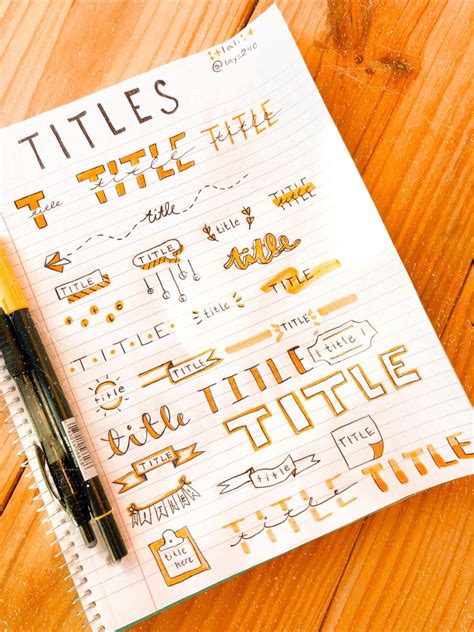 lali
@lays240
TITLES
T title
TITLE title
TITLE title
title
TITLE
title
TITLE
TITLE
TITLE
title
TITLE
TITLE
title
TITLE
title
TITLE
TITLE
title
title
TITLE
TITLE
TITLE
title
TITLE
TITLE
TITLE title
title
here